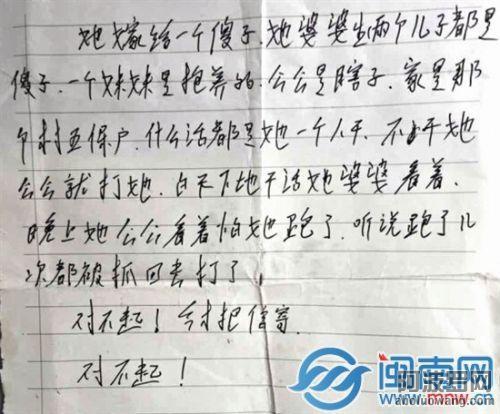 她嫁给一个傻子.她婆婆生两个儿子都是
傻子.一个妹妹是抱养的.公公是瞎子.家是那
个村五保户.什么活都是她一个人干.不干她
公公就打她.白天下地干活她婆婆看着.
晚上她公公看着怕她跑了.听说跑了几
次都被抓回去打了.
对不起！今才把信寄.
对不起！
闽南网
www.mnw.cn
阿波罗网